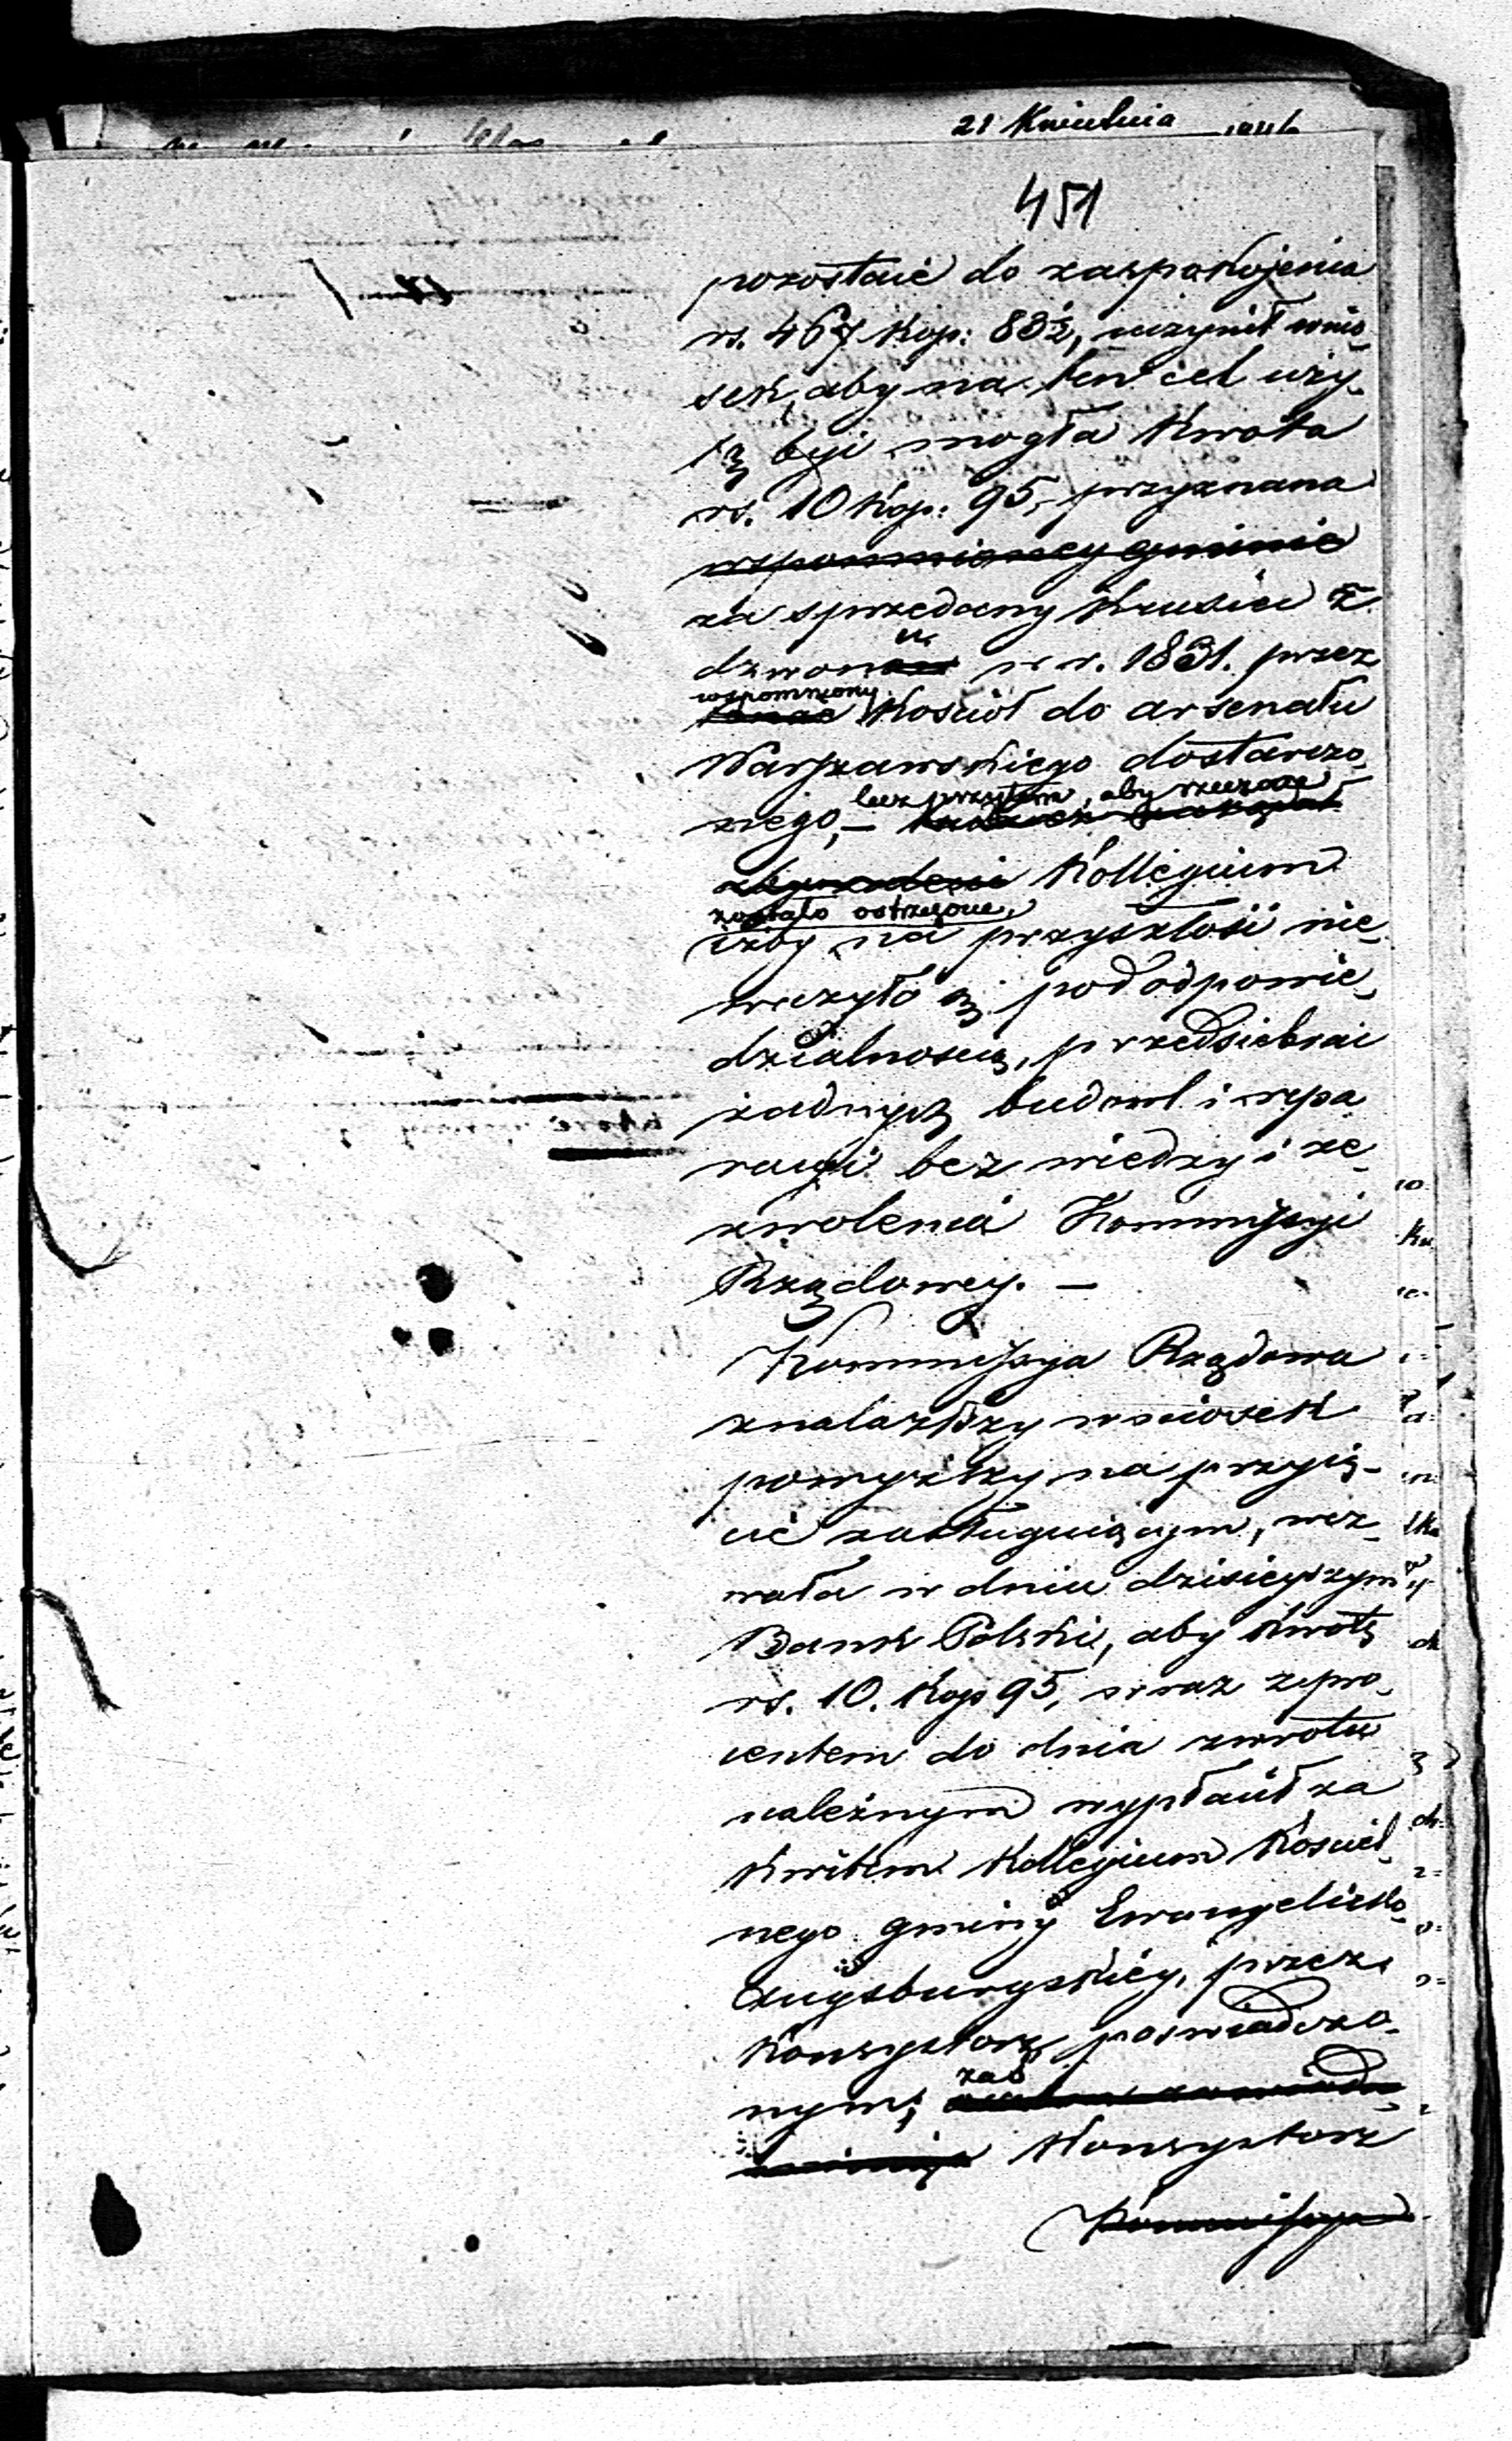 21 Kwietnia
451
pozostaić do zaspokojenia
rs. 467 kop: 88½, uczynił wnio„
sek, aby na ten cel uży„
tą być mogła kwota
rs. 10 kop: 95, przyznana
wspomnioney gminie
za sprzedany kruszcu z
dzwonu w r. 1831. przez
wspomniony
Kościół do arsenału
Warszawskiego dostarczo„
lecz przytem, aby rzeczone
nego, —
Kollegium
zostało ostrzeżone,
iżby na przyszłość nie„
ważyło się pod odpowie„
dzialnością, przedsiebrać
żadnych budowl i repa
racyi bez wiedzy i ze„
zwolenia Kommissyi
Rządowey. —
Kommissya Rządowa
znalazłszy wniosek
powyższy na przyię-
cie zasługuiącym, wez„
wała w dniu dzisieyszym
Bank Polski, aby kwotę
rs. 10. kop 95, wraz z pro„
centem do dnia zwrotu
należnym wypłacił za
kwitem Kollegium Kościel„
nego gminy Ewangelicko„
Augsburgskiéy, przez
Konsystorz poświadczo„
zaś
nym;
Konsystorz
Kommissya